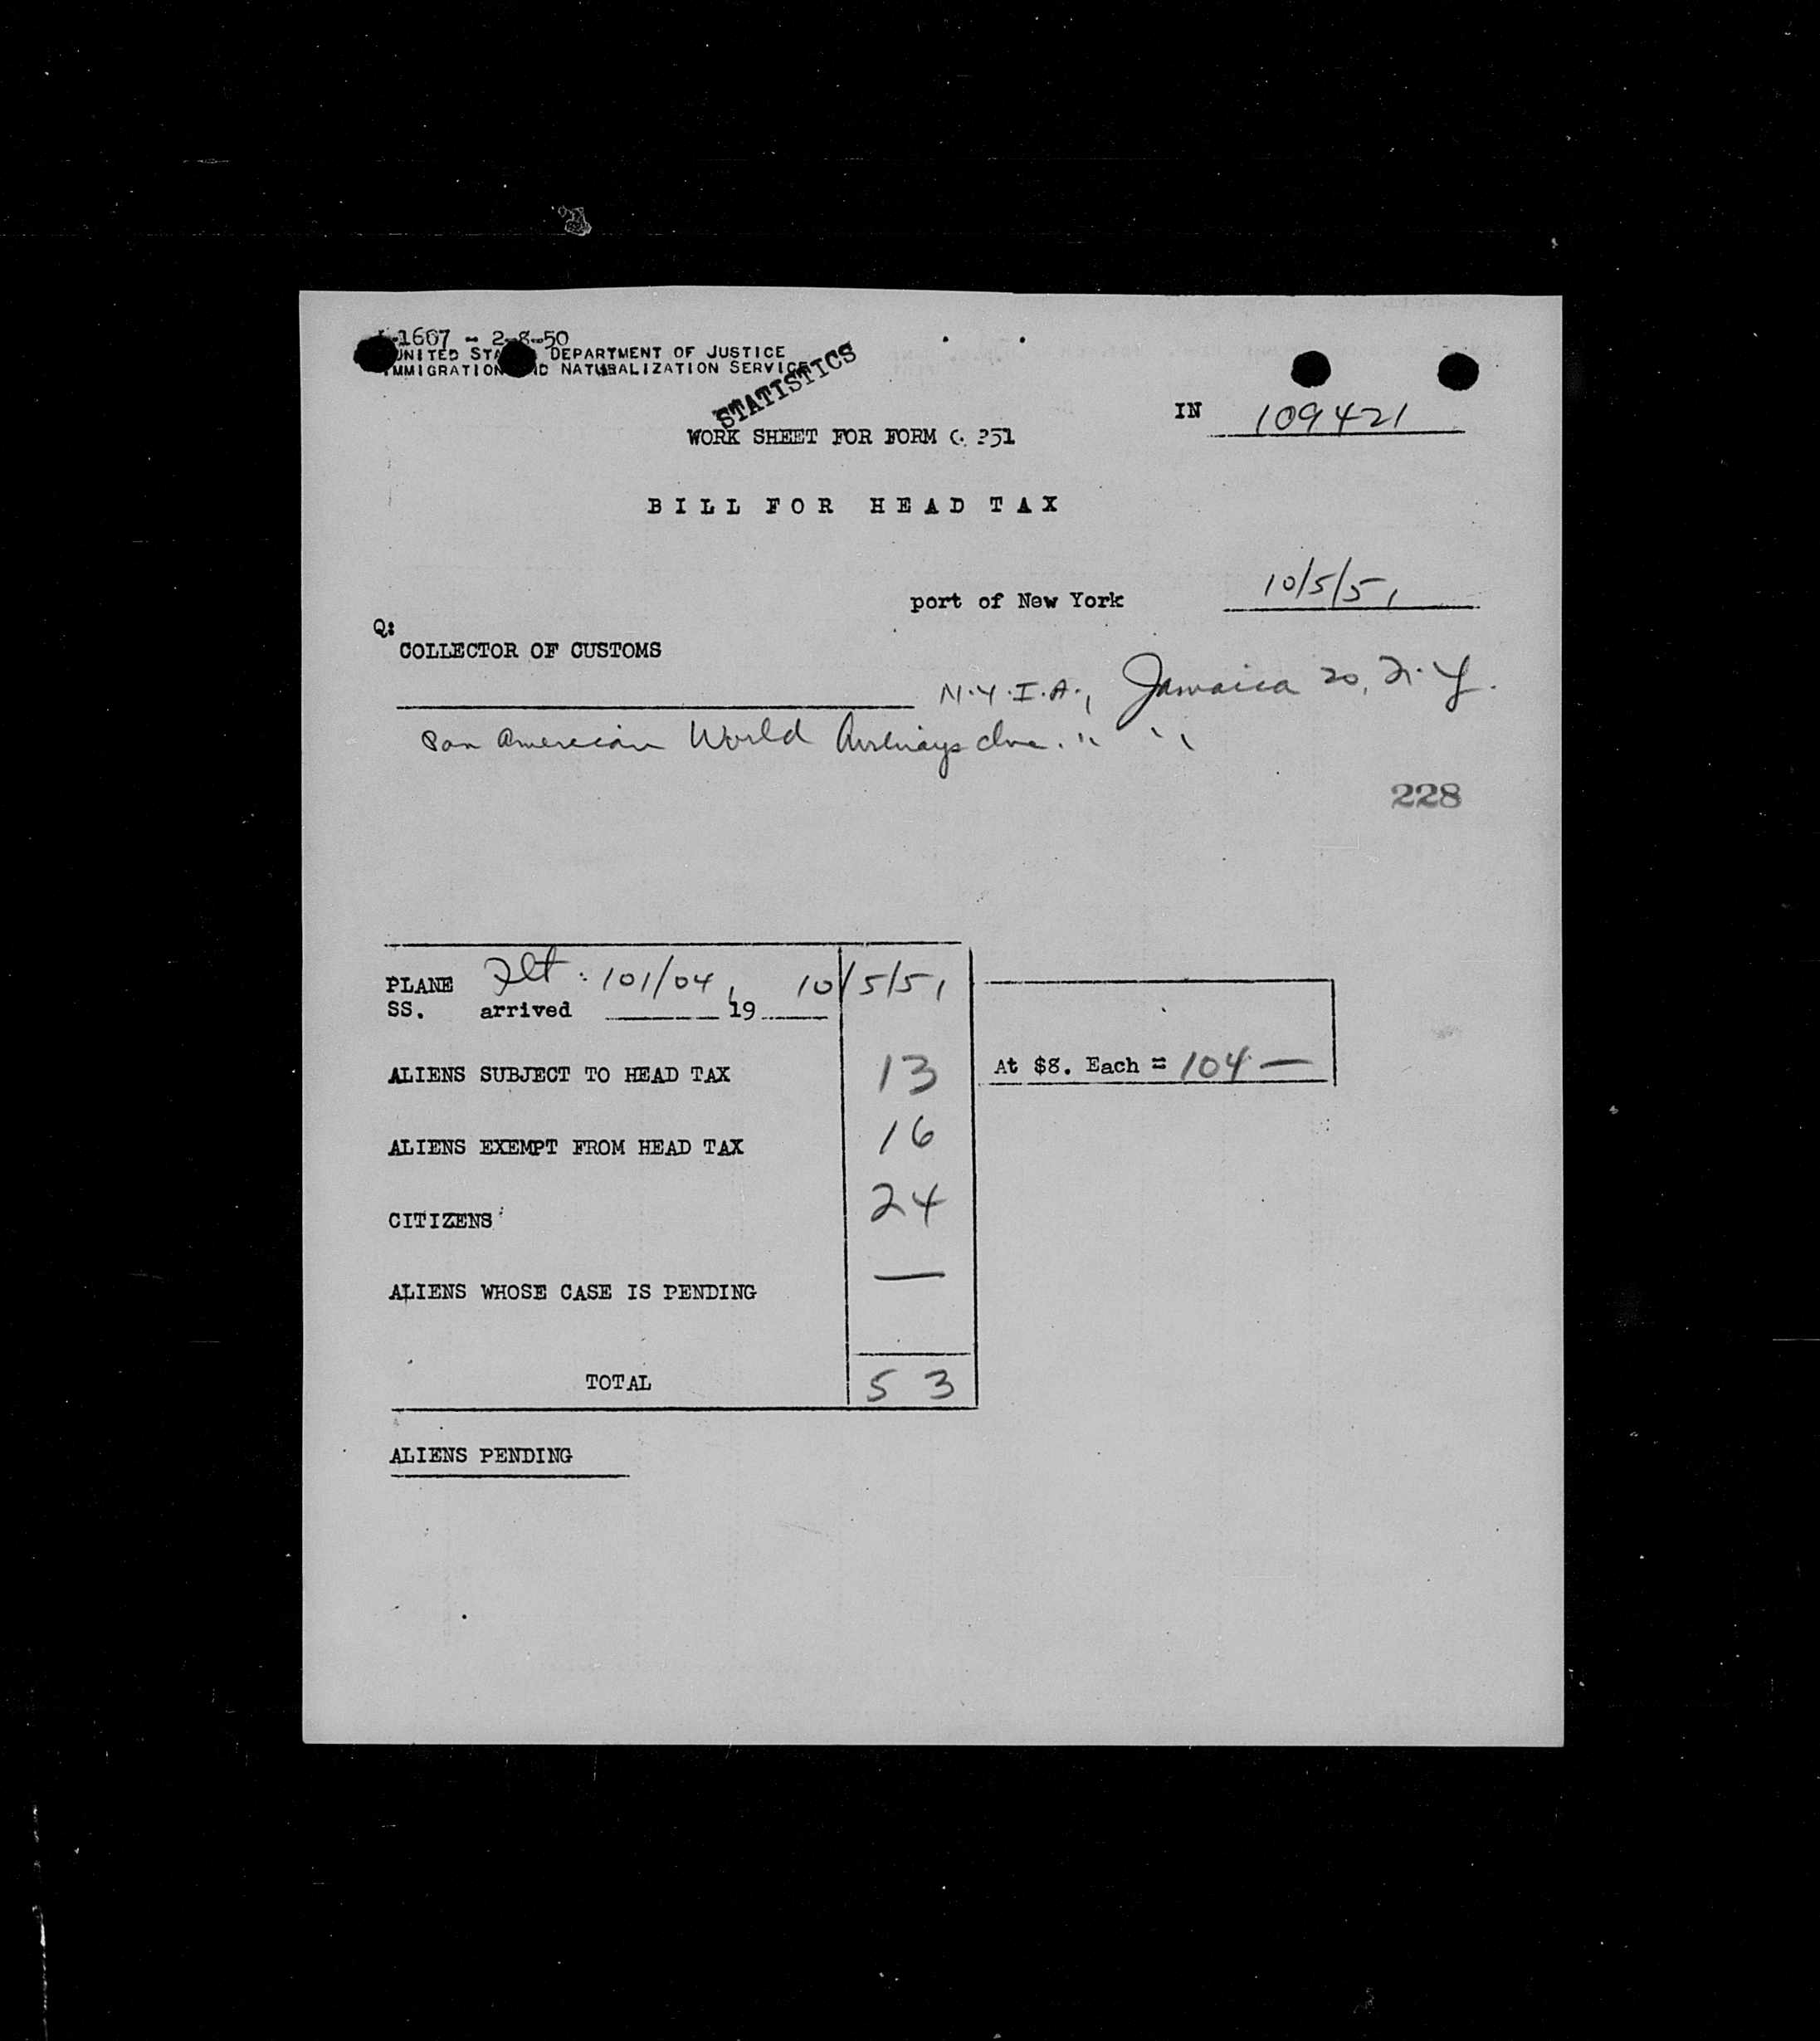 -1607 - 2-8-50
UNITED STA DEPARTMENT OF JUSTICE
IMMIGRATION ND NATURALIZATION SERVICE
STATISTICS
IN 109421
WORK SHEET FOR FORM 351
BILL FOR HEAD TAX
port of New York 10/5/51
Q:
COLLECTOR OF CUSTOMS
N.Y.I.A., Jamaica 20, N.Y.
Pan American World Airways Inc. " "
228
PLANE Flt: 101/04, 10/5/51
SS. arrived 19
ALIENS SUBJECT TO HEAD TAX 13 At $8. Each = 104 —
ALIENS EXEMPT FROM HEAD TAX 16
CITIZENS 24
ALIENS WHOSE CASE IS PENDING —
TOTAL 53
ALIENS PENDING